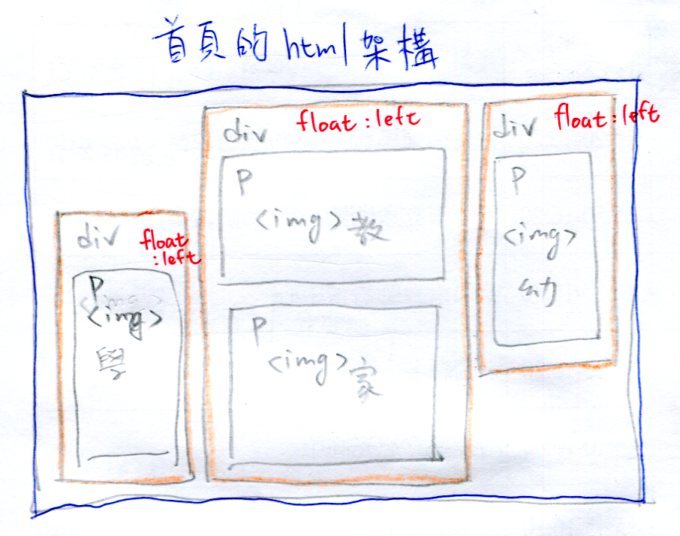 首頁的html架構
div float:left
P
<img>教
P
<img>家
div float:left
P
<img>
幼
div float
:left
P
<img>
學